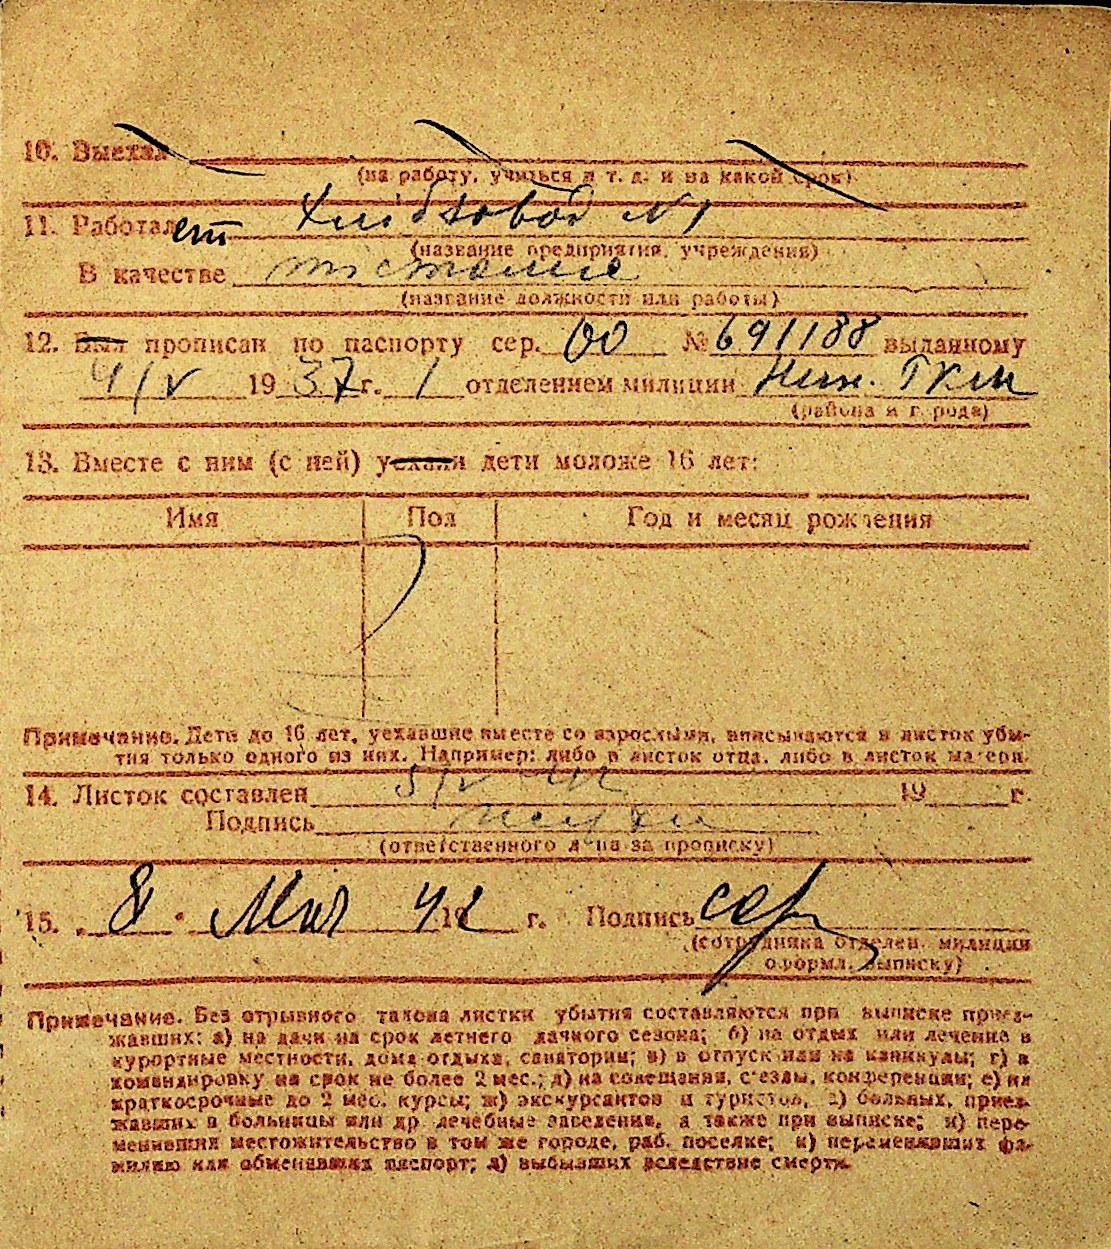 10. Выехал
(на работу, учиться и т. д. и на какой срок)
11. Работает Хлібзавод №1
(название предприятия, учреждения)
В качестве
(название должности или работы)
12. Был прописан по паспорту сер. ОО № 691188 выданному
4/IV 1937 г. 1 отделением милиции
(района и города)
13. Вместе с ним (с ней) уехали дети моложе 16 лет:
Имя Пол Год и месяц рождения
Примечание. Дети до 16 лет, уехавшие вместе со взрослыми, вписываются в листок убы-
тия только одного из них. Например: либо в листок отца, либо в листок матери.
14. Листок составлен 5/V 42 19 г.
Подпись
(ответственного лица за прописку)
15. 8 Мая 42 19 г. Подпись
(сотрудника отделен. милиции
оформл. выписку)
Примечание. Без отрывного талона листки убытия составляются при выписке приез-
жавших: а) на дачи на срок летнего дачного сезона; б) на отдых или лечение в
курортные местности, дома отдыха, санатории; в) в отпуск или на каникулы; г) в
командировку на срок не более 2 мес.; д) на совещания, съезды, конференции; е) на
краткосрочные до 2 мес. курсы; ж) экскурсантов и туристов, з) больных, приез-
жавших в больницы или др. лечебные заведения, а также при выписке; и) пере-
менивших местожительство в том же городе, раб. поселке; к) переменивших фа-
милию или обменявших паспорт; л) выбывших вследствие смерти.